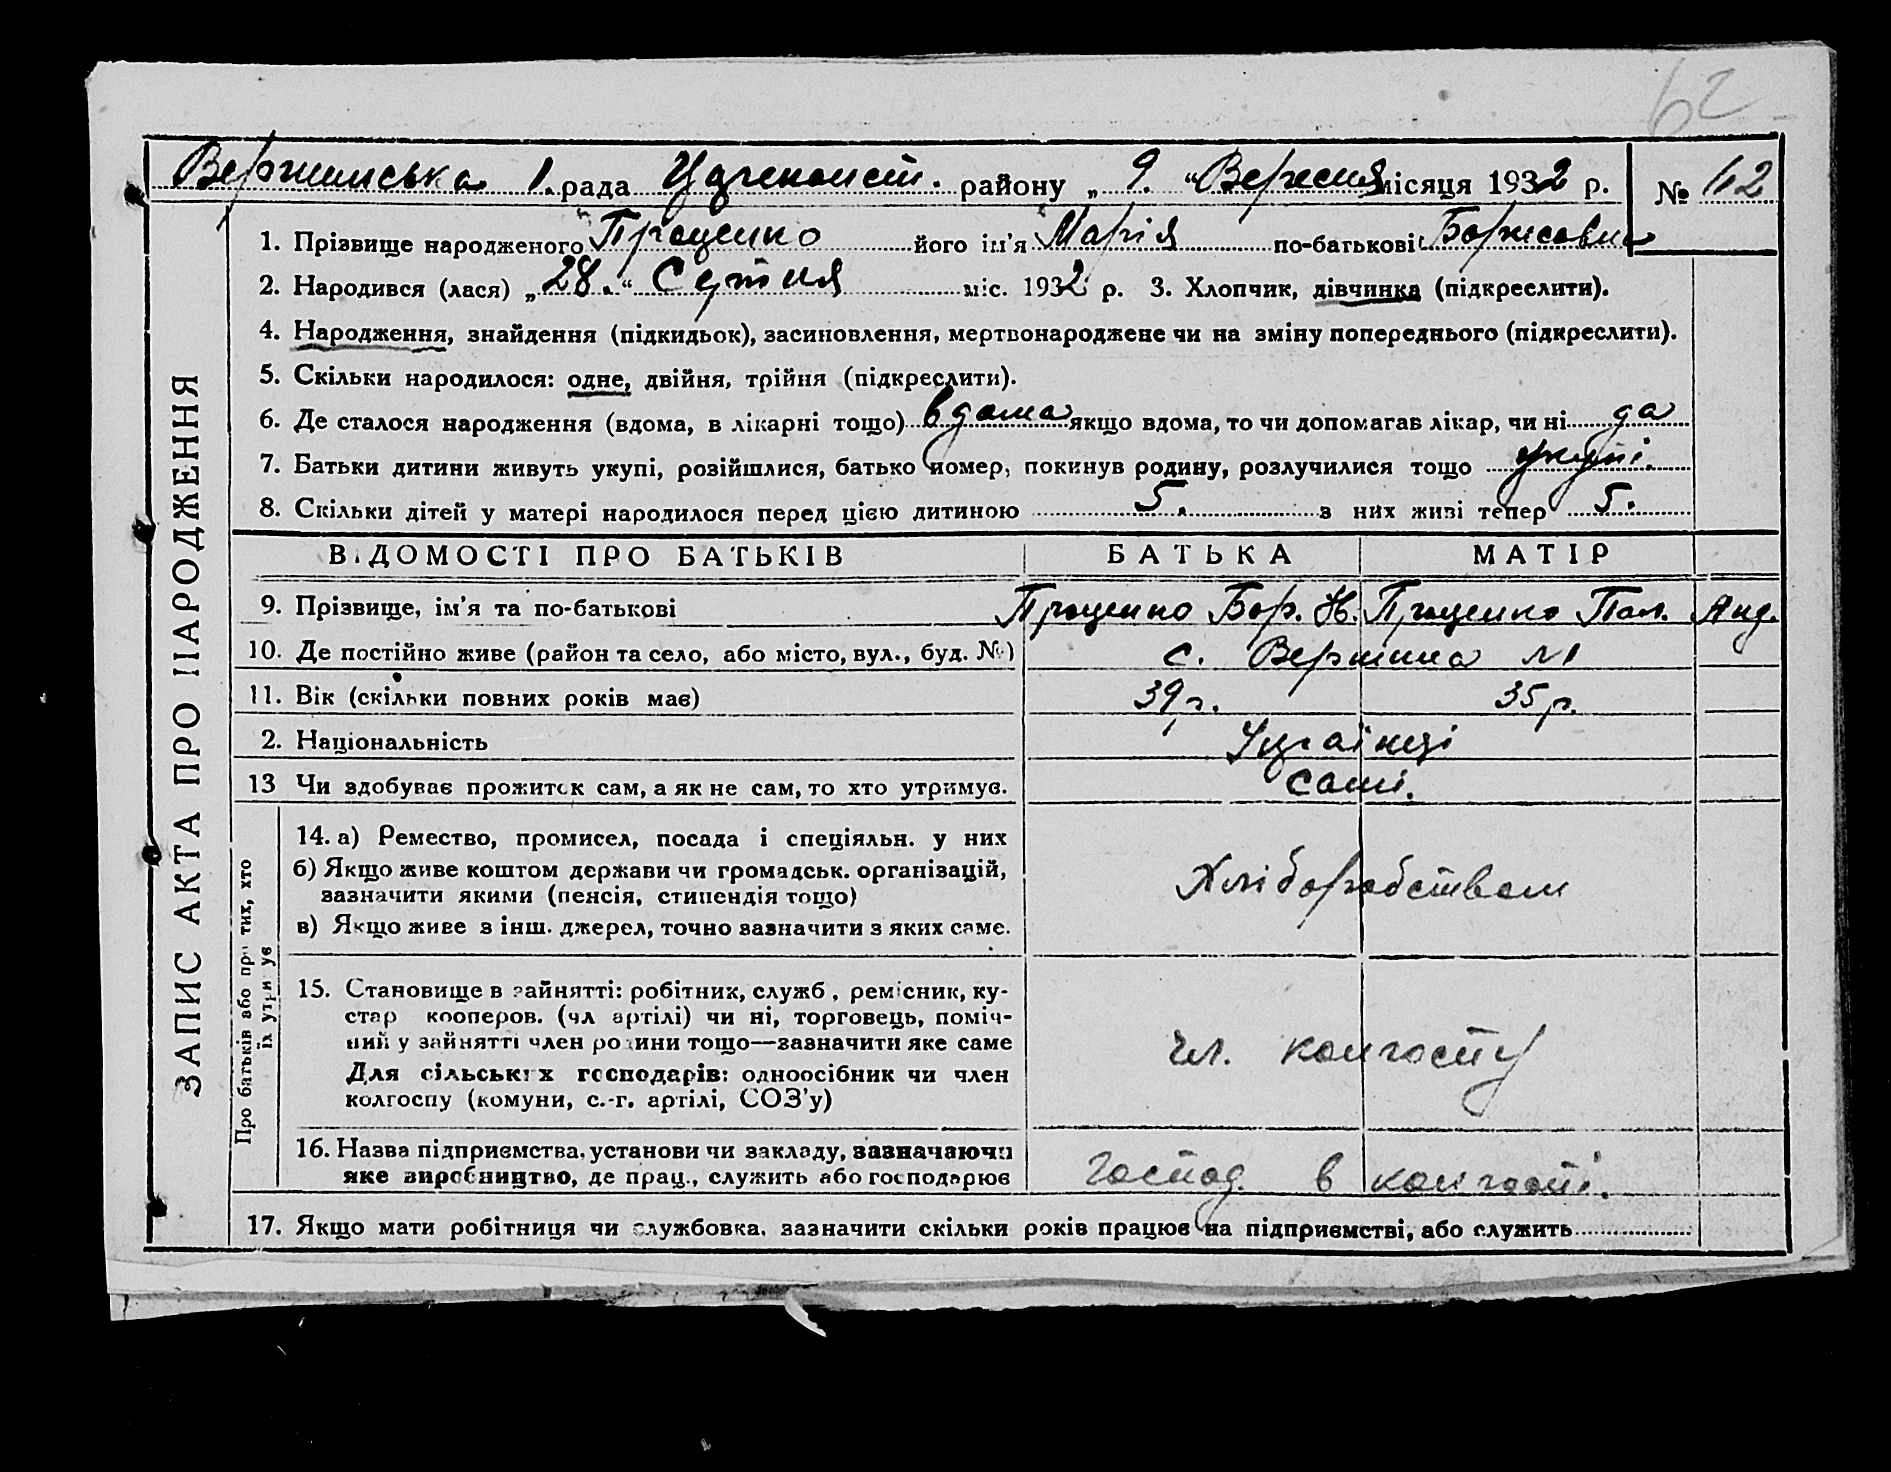 62
Вершинська 1. рада Цугеномст. району „ 9. “ Вересня місяця 1932 р. № 62
1. Прізвище народженого Проценко його ім’я Марія по-батькові Борисовна
2. Народився (лася) „ 28. “ Серпня міс. 1932 р. 3. Хлопчик, дівчинка (підкреслити).
4. Народження, знайдення (підкидьок), засиновлення, мертвонароджене чи на зміну попереднього (підкреслити).
5. Скільки народилося: одне, двійня, трійня (підкреслити).
6. Де сталося народження (вдома, в лікарні тощо) вдома якщо вдома, то чи допомагав лікар, чи ні да
7. Батьки дитини живуть укупі, розійшлися, батько помер, покинув родину, розлучилися тощо укупі.
8. Скільки дітей у матері народилося перед цією дитиною 5. з них живі тепер 5.
ЗАПИС АКТА ПРО НАРОДЖЕННЯ
ВІДОМОСТІ ПРО БАТЬКІВ БАТЬКА МАТІР
9. Прізвище, ім’я та по-батькові Проценко Бор. Н. Проценко Пел. Анд.
10. Де постійно живе (район та село, або місто, вул., буд. №) с. Вершина №1
11. Вік (скільки повних років має) 39 р. 35 р.
2. Національність Українці
13 Чи здобуває прожиток сам, а як не сам, то хто утримує. Самі.
Про батьків або про тих, хто
їх утримує
14. а) Ремество, промисел, посада і спеціяльн. у них
б) Якщо живе коштом держави чи громадськ. організацій,
зазначити якими (пенсія, стипендія тощо)
в) Якщо живе з інш. джерел, точно зазначити з яких саме.
Хліборобством
15. Становище в зайнятті: робітник, служб, ремісник, ку-
стар кооперов. (чл артілі) чи ні, торговець, поміч-
ний у зайнятті член родини тощо—зазначити яке саме
Для сільських господарів: одноосібник чи член
колгоспу (комуни, с.-г. артілі, СОЗ’у)
чл. колгоспу
16. Назва підприємства, установи чи закладу, зазначаючи
яке виробництво, де прац., служить або господарює
господ. в колгоспі.
17. Якщо мати робітниця чи службовка, зазначити скільки років працює на підприємстві, або служить